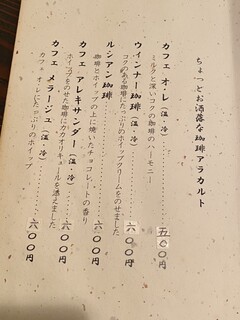 ちょっとお洒落な珈琲アラカルト
カフェ オ・レ（温・冷）……… 五〇〇円
ミルクと深いコクの珈琲のハーモニー
ウィンナー珈琲（温・冷）……… 六〇〇円
コクのある珈琲にたっぷりのホイップクリームをのせました
ルシアン珈琲……… 六〇〇円
珈琲とホイップの上に焼いたチョコレートの香り
カフェ アレキサンダー（温・冷）……… 六〇〇円
ホイップをのせた珈琲にカカオリキュールを添えました
カフェ メラージュ（温・冷）……… 六〇〇円
カフェ・オ・レにたっぷりのホイップ